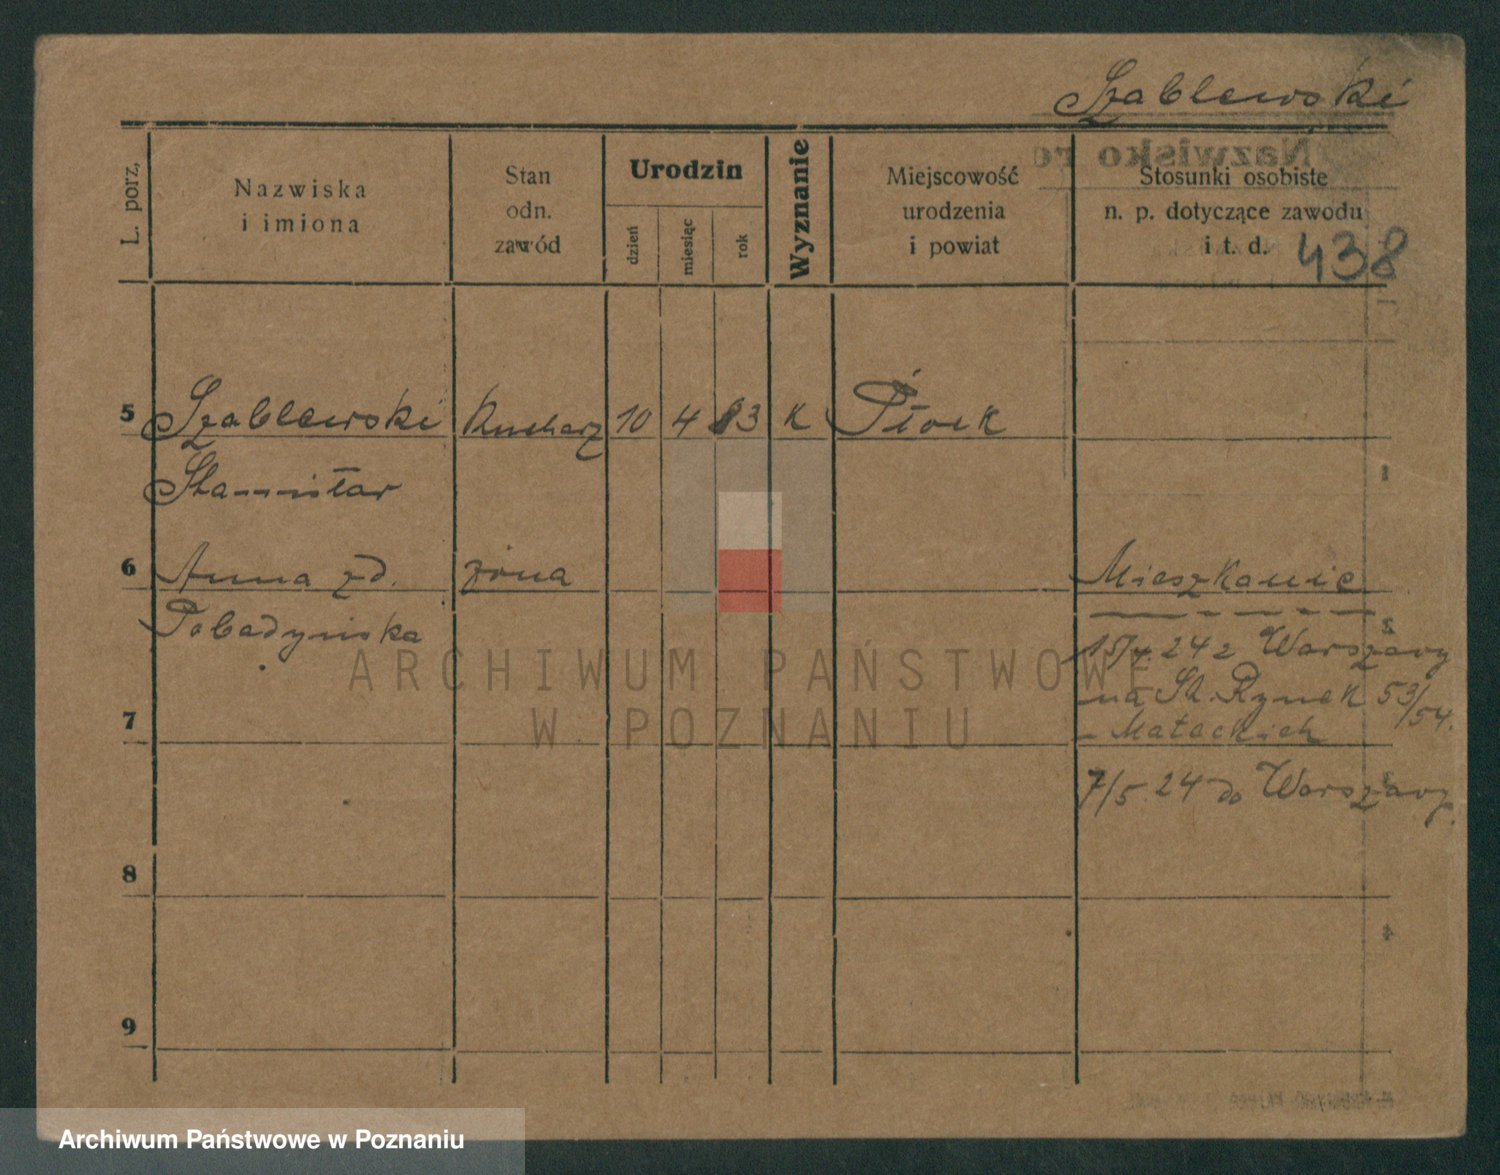 Szablewski
L. porz.
Nazwiska
i imiona
Stan
odn.
zawód
Urodzin
dzień
miesiąc
rok
Wyznanie
Miejscowość
urodzenia
i powiat
Nazwisko
Stosunki osobiste
n. p. dotyczące zawodu
i t. d.
438
5 Szablewski Kucharz 10 4 83 K Płock
Stanisław
6 Anna zd. żona Mieszkanie
Pobadyńska
15/4 24 z Warszawy
na St. Rynek 53/54.
7
7/5 24 do Warszawy.
8
9
1
2
3
4
ARCHIWUM PAŃSTWOWE
W POZNANIU
Archiwum Państwowe w Poznaniu